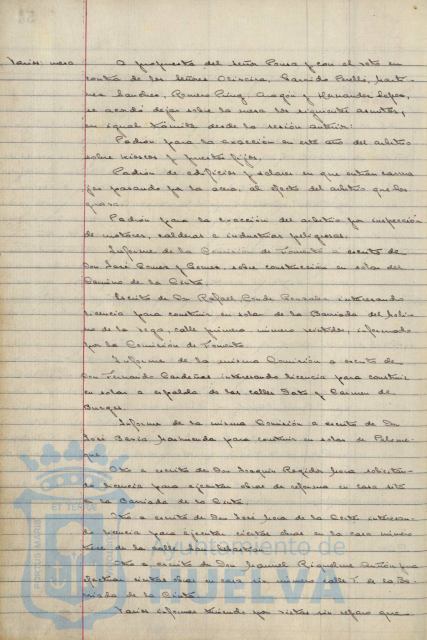 Varios: mesa
A propuesta del Señor Ponsa y con el voto en
contra de los Señores Oliveira, Garrido Perelló, Mart-
nez Sánchez, Romero Puig, Aragón y Hernández López,
se acordó dejar sobre la mesa los siguientes asuntos,
en igual trámite desde la sesión anterior:
Padrón para la exacción en este año del arbitrio
sobre kioscos y puestos fijos.
Padrón de edificios y solares en que entran carrua
jes pasando por la acera, al efecto del arbitrio que los
grava.
Padrón para la exacción del arbitrio por inspección
de motores, calderas e industrias peligrosas.
Informe de la Comisión de Fomento a escrito de
Don José Gómez y Gómez, sobre construcción en solar del
Camino de la Cinta.
Escrito de Dn Rafael Conde González interesando
licencia para construir en solar de la Barriada del Moli
no de la Vega, calle primera número veintidós, informado
por la Comisión de Fomento
Informe de la misma Comisión a escrito de
Don Fernando Cárdenas interesando licencia para construir
en solar a espalda de las calles Soto y Carmen de
Burgos.
Informe de la misma Comisión a escrito de Dn
José García para construir en solar de
Otro a escrito de Don Joaquín Regidor Mora solicitan
do licencia para ejecutar obras de reforma en casa sita
en la Barriada de la Cinta.
Otro a escrito de Dn José Mora de la Corte interesan-
do licencia para ejecutar ciertas obras en la casa número
trece de la calle San Sebastián
Otro a escrito de Don Manuel Riquelme Antón para
efectuar ciertas obras en casa sin número calle T. de la Ba-
rriada de la Cinta.
Varios informes teniendo por vistos sin reparo que
ET TERRA
PORTUS MARIS
Ayuntamiento de
HUELVA